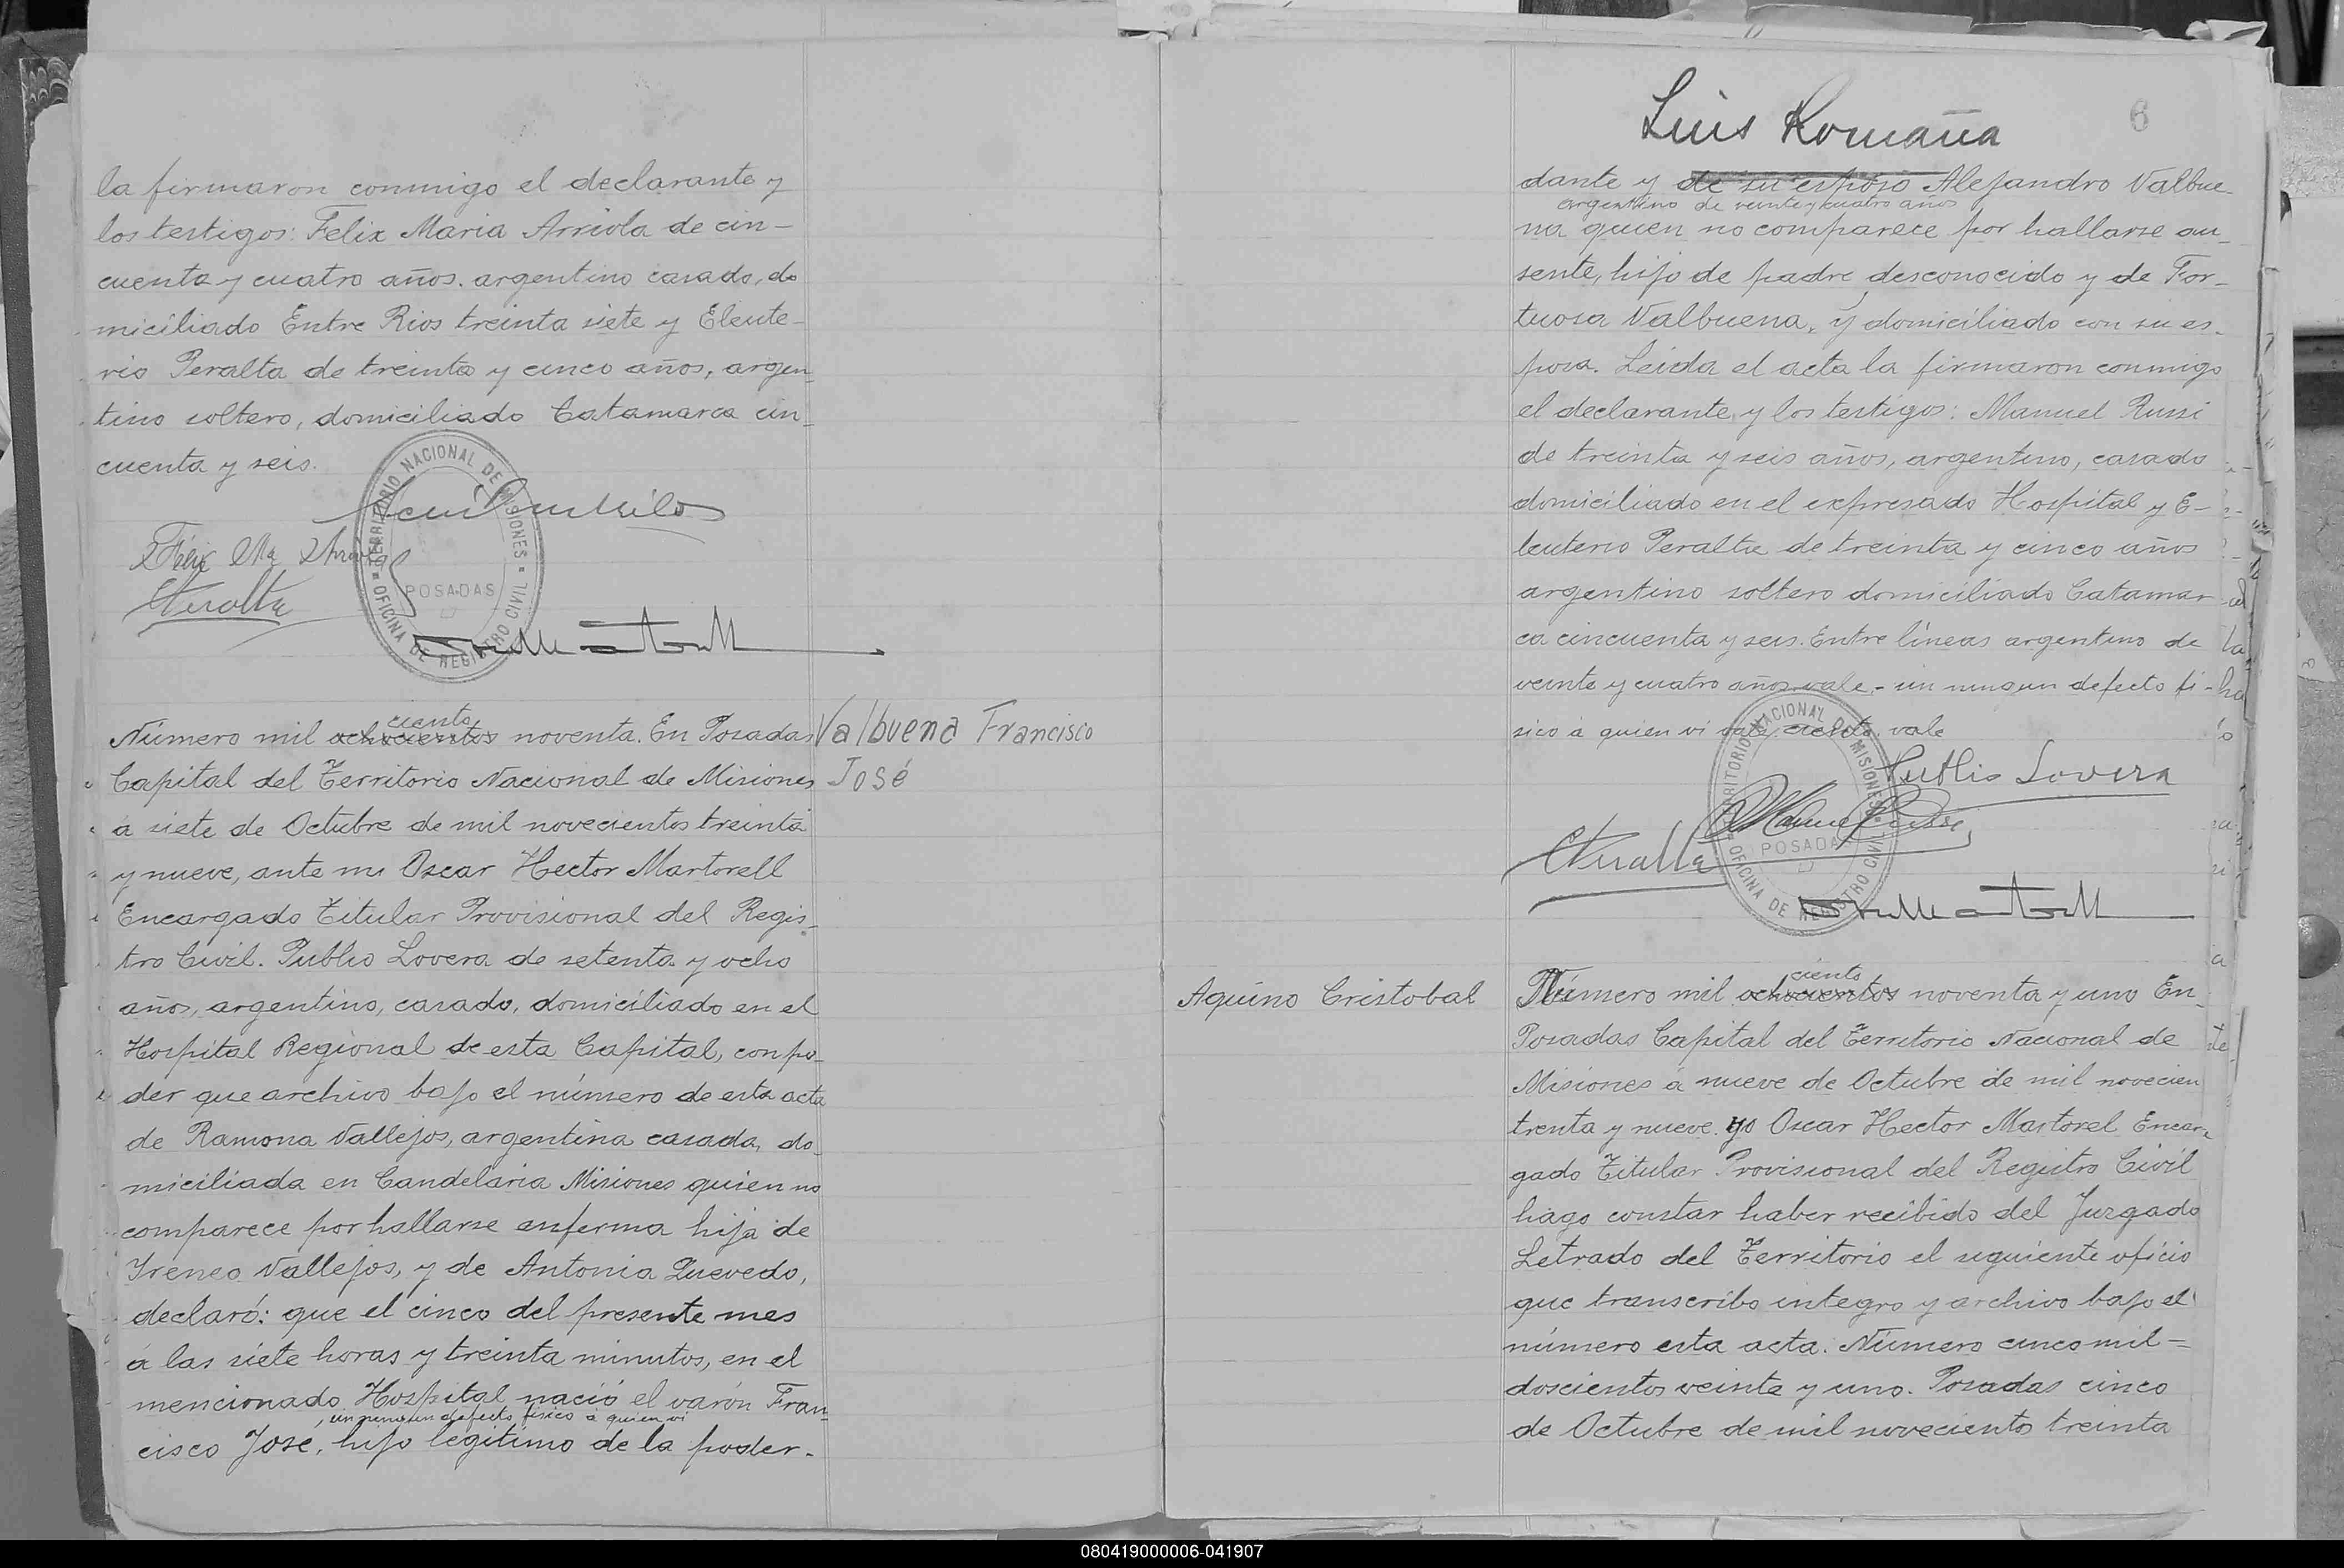 la firmaron conmigo el declarante y
los testigos: Felix Maria Arriola de cin-
cuenta y cuatro años. argentino casado, do
miciliado Entre Rios treinta siete y Eleute-
rio Peralta de treinta y cinco años, argen-
tino soltero, domiciliado Catamarca cin-
cuenta y seis.
TERRITORIO NACIONAL DE MISIONES
POSADAS
OFICINA DE REGISTRO CIVIL
Peralta
Valbuena Francisco
José
ciento
Número mil ochocientos noventa. En Posadas
Capital del Territorio Nacional de Misiones
á siete de Octubre de mil novecientos treinta
y nueve, ante mi Oscar Hector Martorell
Encargado Titular Provisional del Regis-
tro Civil. Publio Lovera de setenta y ocho
años, argentino, casado, domiciliado en el
Hospital Regional de esta Capital, con po-
der que archivo bajo el número de esta acta
de Ramona Vallejos, argentina casada, do-
miciliada en Candelaria Misiones quien no
comparece por hallarse enferma hija de
Ireneo Vallejos, y de Antonia Quevedo,
declaró: que el cinco del presente mes
á las siete horas y treinta minutos, en el
mencionado Hospital nació el varón Fran-
, sin ningun defecto fisico a quien vi
cisco José, hijo legítimo de la poder-
Luis Romaña
6
dante y de su esposo Alejandro Valbue-
argentino de veinte y cuatro años
na quien no comparece por hallarse au-
sente, hijo de padre desconocido y de For-
tuosa Valbuena, y domiciliado con su es-
posa. Leída el acta la firmaron conmigo
el declarante y los testigos: Manuel Russi
de treinta y seis años, argentino, casado
domiciliado en el expresado Hospital y E-
leuterio Peralta de treinta y cinco años
argentino soltero domiciliado Catamar-
ca cincuenta y seis. Entre líneas argentino de
veinte y cuatro años vale - sin ningun defecto fi-
sico á quien vi vale, ciento, vale
Publio Lovera
Peralta
TERRITORIO NACIONAL DE MISIONES
POSADAS
OFICINA DE REGISTRO CIVIL
Aquino Cristobal
ciento
Número mil ochocientos noventa y uno En
Posadas Capital del Territorio Nacional de
Misiones á nueve de Octubre de mil novecien
trenta y nueve. yo Oscar Hector Martorel Encar-
gado Titular Provisional del Registro Civil
hago constar haber recibido del Juzgado
Letrado del Territorio el siguiente oficio
que transcribo integro y archivo bajo el
número esta acta. Número cinco mil =
doscientos veinte y uno. Posadas cinco
de Octubre de mil novecientos treinta
080419000006-041907